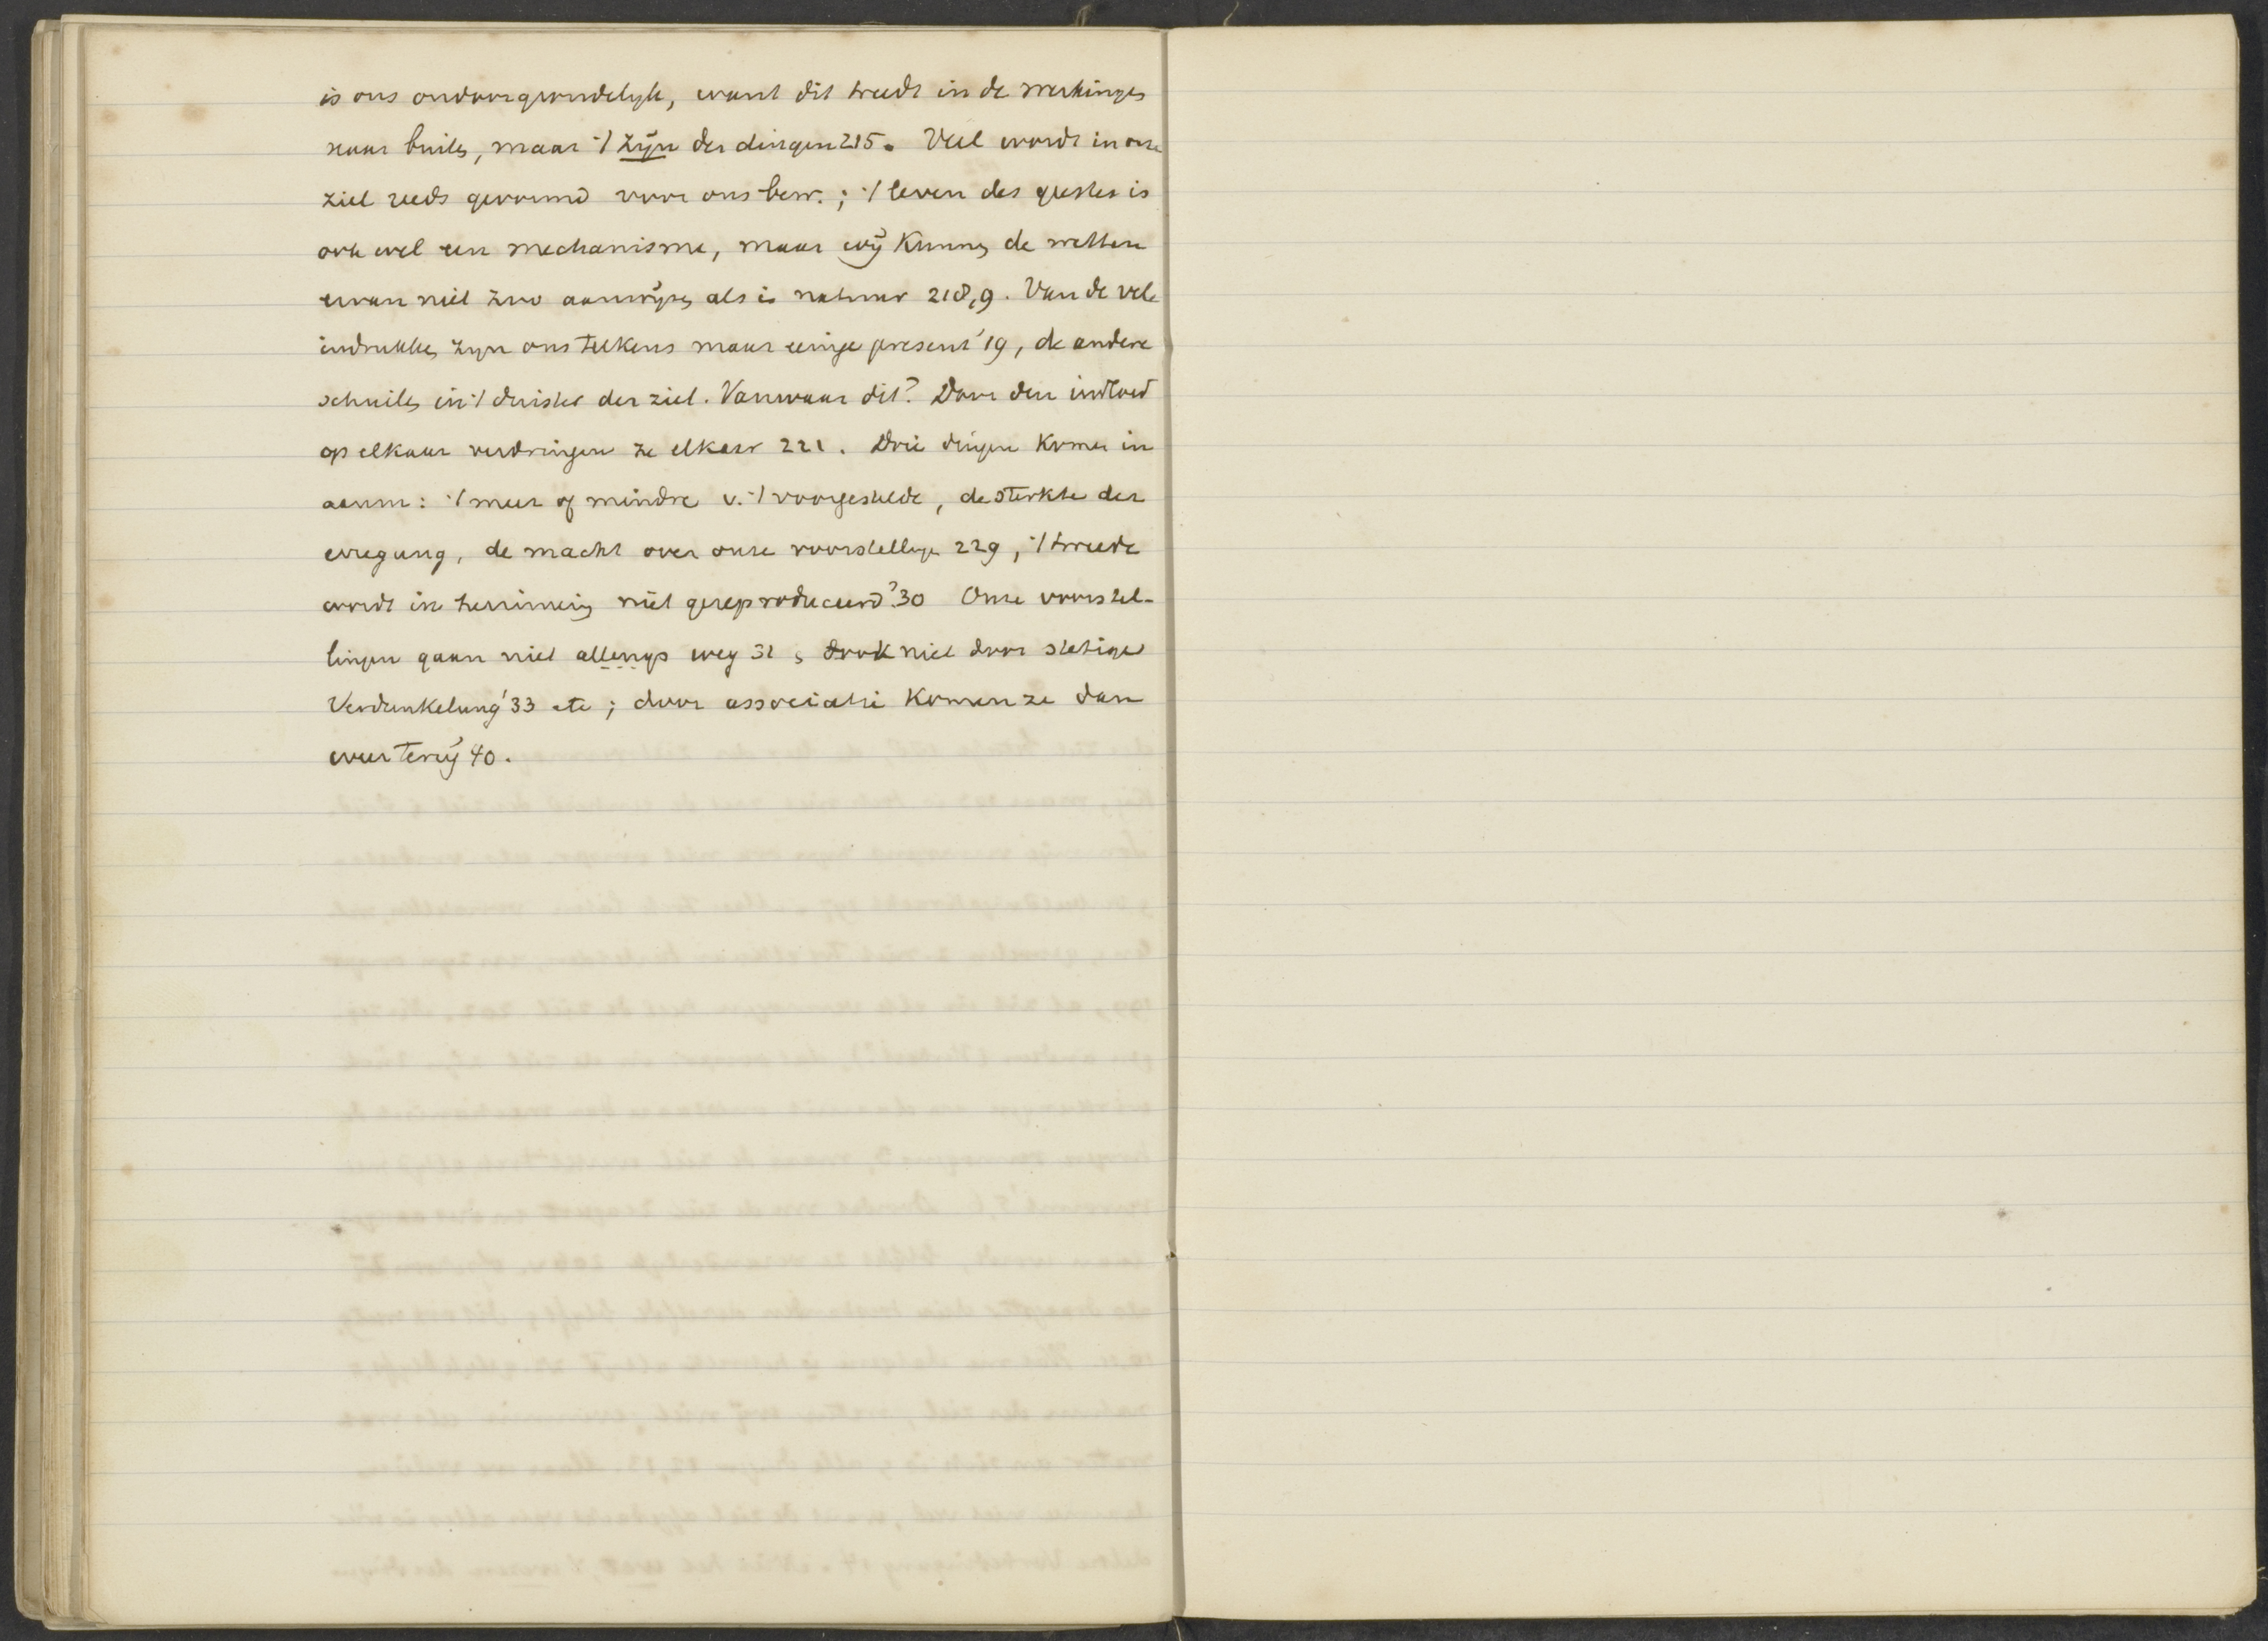 is ons ondoorgrondelyk, want dit treedt in de werkingen
naar buiten, maar 't zyn der dingen 215. Veel wordt in onze
ziel reeds gevormd voor ons bew.; 't leven des geestes is
ook wel een mechanisme, maar wij kunnen de wetten
ervan niet zoo aanwijzen als in natuur 218,9. Van de vele
indrukken zyn ons telkens maar eenige present '19, de andere
schuilen in 't duister der ziel. Vanwaar dit? Door den invloed
op elkaar verdringen ze elkaar 221. Drie dingen komen in
aanm: 't meer of mindre v. 't voorgestelde, de sterkte der
erregung, de macht over onze voorstellingen 229, 't tweede
wordt in herinnering niet gereproduceerd '30 Onze voorstel-
lingen gaan niet allengs weg 31, ook niet door stetige
Verdunkelung '33 etc; door associatie komen ze dan
weer terug 40.